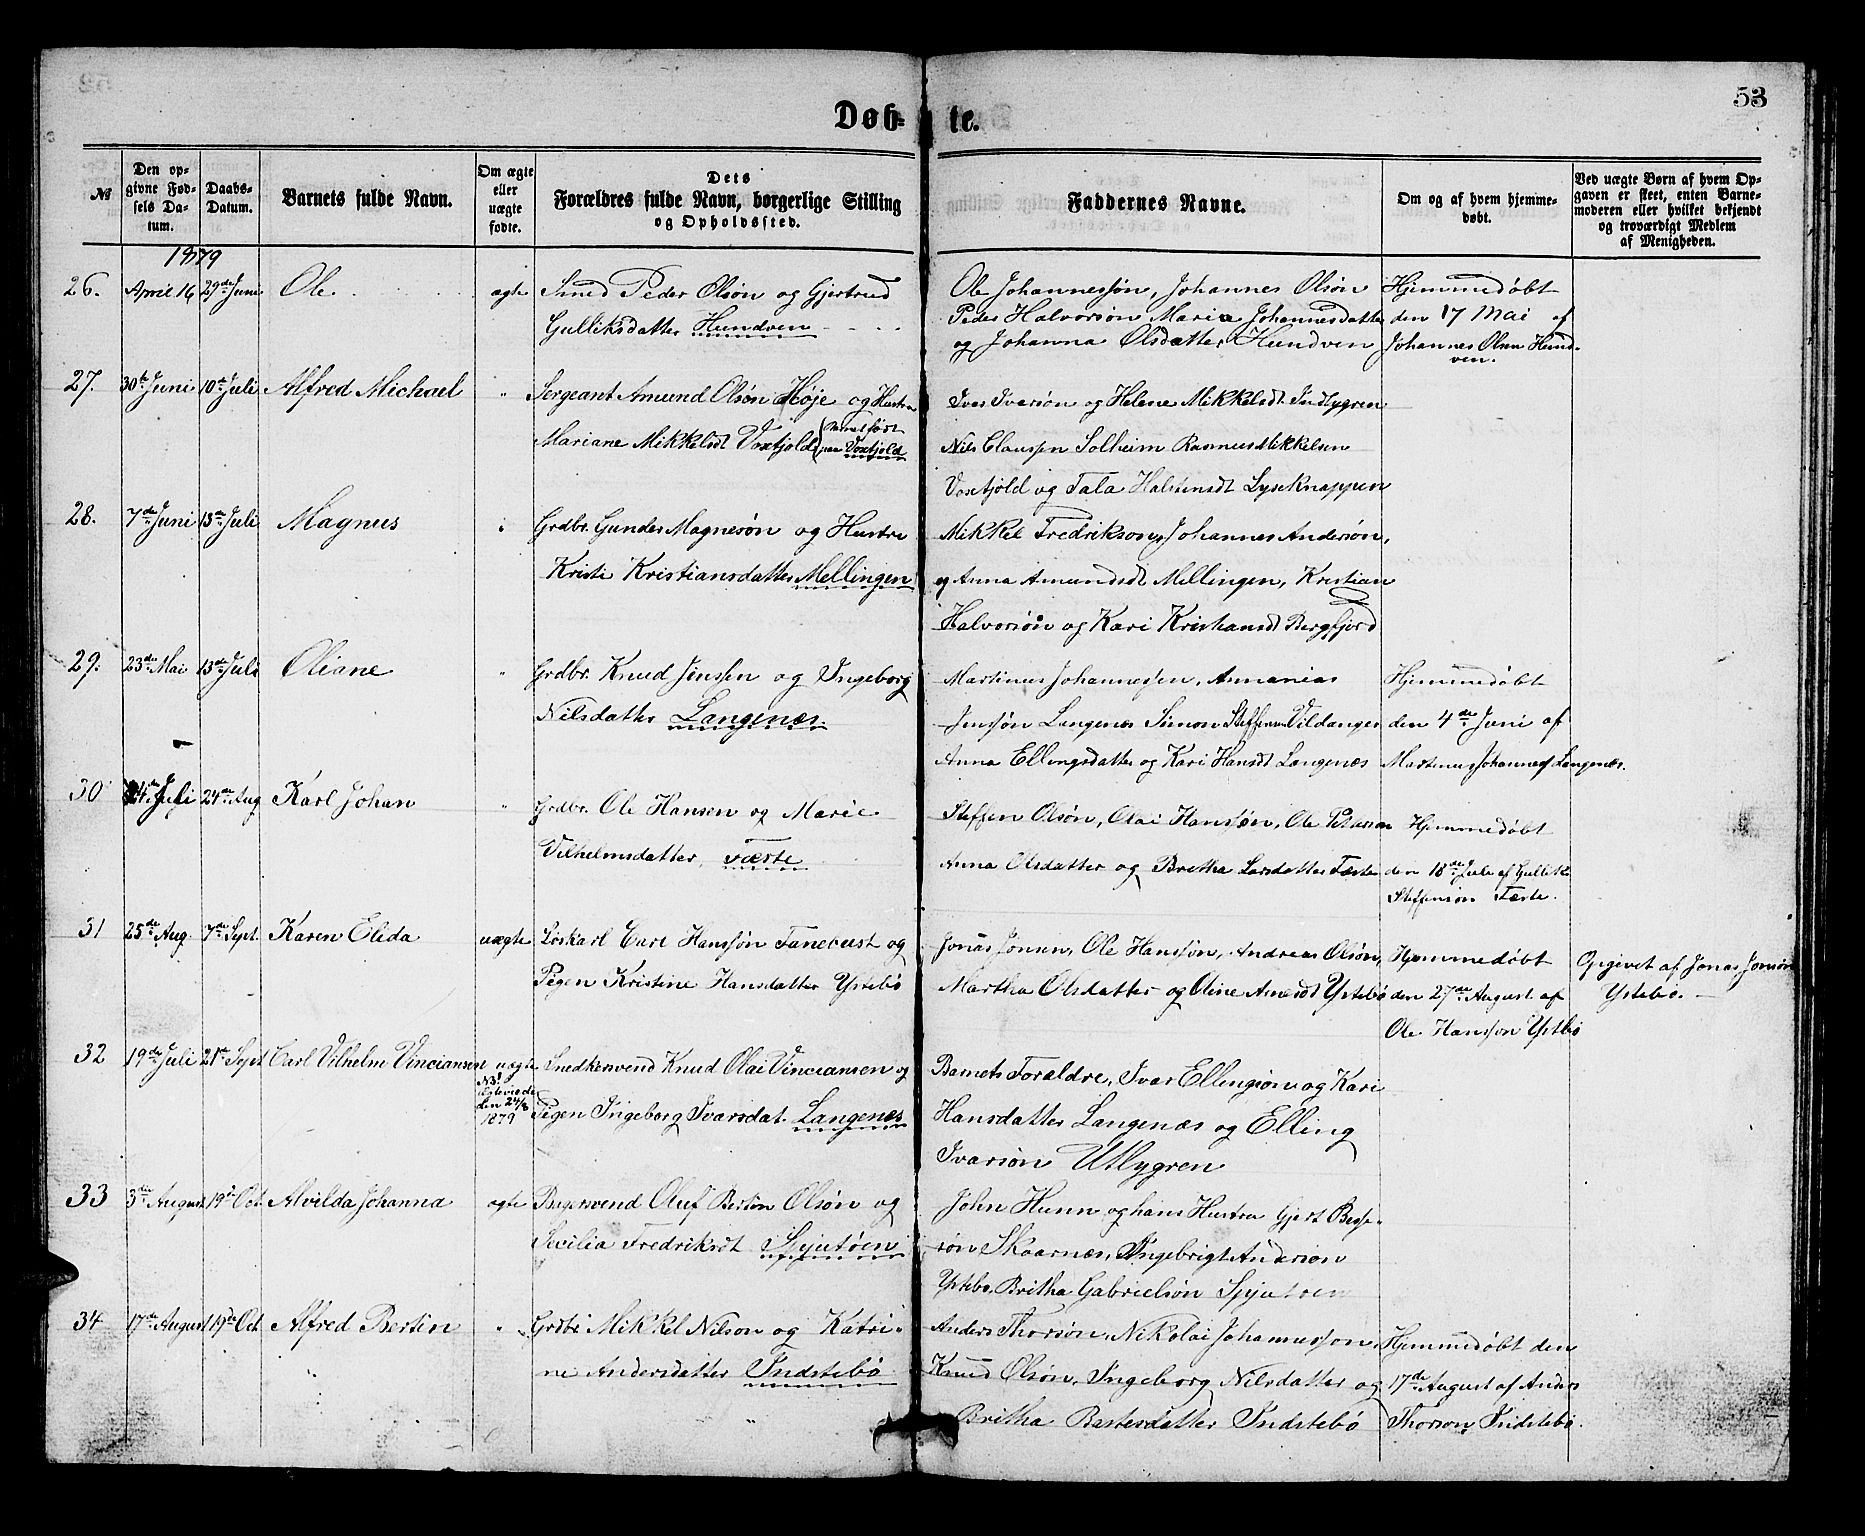 53
Døb- te.
No
Den op-
givne Fød-
sels Da-
tum.
Daabs-
Datum.
Barnets fulde Navn.
Om ægte
eller
uægte
fødte.
Dets
Forældres fulde Navn, borgerlige Stilling
og Opholdssted.
Faddernes Navne.
Om og af hvem hjemme-
døbt.
Ved uægte Børn af hvem Op-
gaven er skeet, enten Barne-
moderen eller hvilket bekjendt
og troværdigt Medlem
af Menigheden.
1879
26. April 16 29de Juni Ole. ægte Smed Peder Olsøn og Gjertrud
Gulliksdatter Hundven
Ole Johannessøn, Johannes Olsøn
Peder Halvorsøn Maria Johannesdatter
og Johanna Olsdatter Hundven
Hjemmedøbt
den 17 Mai af
Johannes Olsen Hund-
ven.
27. 30te Juni 10de Juli Alfred Michael " Sergeant Amund Olsøn Høje og Hustru
Mariane Mikkelsdt Voxtjold (Barnet født
paa Voxtjold
Iver Iversøn og Helene Mikkelsdt Indlygren
Nils Claussen Solheim Rasmus Mikkelsen
Voxtjold og Tala Halstensdt Lyseknappen
28. 7de Juni 13de Juli Magnus " Grdbr. Gunder Magnesøn og Hustru
Kristi Kristiansdatter Mellingen
Mikkel Fredrikson, Johannes Andersøn,
og Anna Amundsdt Mellingen, Kristian
Halvorsøn og Kari Kristiansdt Bergfjord
29. 23de Mai 13de Juli Oliane " Grdbr. Knud Jensen og Ingeborg
Nilsdatter Langenæs
Martinus Johannessen, Annanias
Jenssøn Langenæs Simon Steffensen Vildanger
Anna Ellingsdatter og Kari Hansdt Langenæs
Hjemmedøbt
den 4de Juni af
Martinus Johannes. Langenæs.
30 14de Juli 24de Aug Karl Johan " Grdbr. Ole Hansen og Marie
Vilhelmsdatter, Tæste
Steffen Olsøn, Olai Hanssøn, Ole Peterson
Anna Olsdatter og Britha Larsdatter Tæste
Hjemmedøbt
den 18de Juli af Gullik
Steffensøn Tæste.
31 25de Aug. 7de Sept. Karen Elida uægte Løskarl Carl Hanssøn Tanebust og
Pigen Kristine Hansdatter Ystebø
Jonas Jonsen, Ole Hanssøn, Andreas Olsøn,
Martha Olsdatter og Oline Arnesdt Ystebø
Hjemmedøbt
den 27de August af
Ole Hansson Ystbø
Opgivet af Jonas Jonsøn
Ystebø.
32 19de Juli 21de Sept Carl Vilhelm Vinciansen uægte
NB!
den 24/8
1879
Snedkersvend Knud Olai Vinciansen og
Pigen Ingeborg Ivarsdat. Langenæs
Barnets Forældre, Ivar Ellingsøn og Kari
Hansdatter Langenæs og Elling
Ivarsøn Utlygren
33 3de August 19de Oct. Alvilda Johanna ægte Oluf Bertin Olsøn og
Secilia Fredriksdt Spjutøen
John Hunn og hans Hustru Gjert Besse-
søn Skaarnæs, Ingebrigt Anderson
Ystebø, Britha Gabrielsøn Spjutøen
34 17de August 19de Oct. Alfred Bertin " Grdbr Mikkel Nilson og Katri-
ne Andersdatter Indstebø
Anders Thorsøn, Nikolai Johannesson,
Knud Olsøn, Ingeborg Nilsdatter og
Britha Bertesdatter Indstebø
Hjemmedøbt den
17de August af Anders
Thorson, Indstebø.